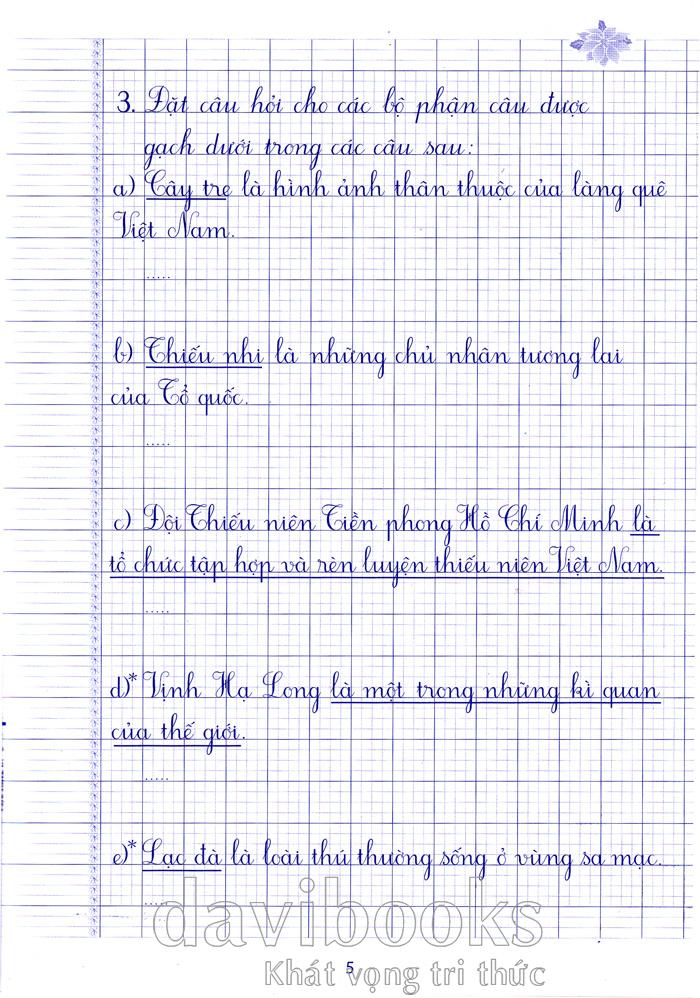 3. Đặt câu hỏi cho các bộ phận câu được
gạch dưới trong các câu sau:
a) Cây tre là hình ảnh thân thuộc của làng quê
Việt Nam.
.....
b) Thiếu nhi là những chủ nhân tương lai
của Tổ quốc.
.....
c) Đội Thiếu niên Tiền phong Hồ Chí Minh là
tổ chức tập hợp và rèn luyện thiếu niên Việt Nam.
.....
d)* Vịnh Hạ Long là một trong những kì quan
của thế giới.
.....
e)* Lạc đà là loài thú thường sống ở vùng sa mạc.
.....
davibooks
Khát vọng tri thức
5